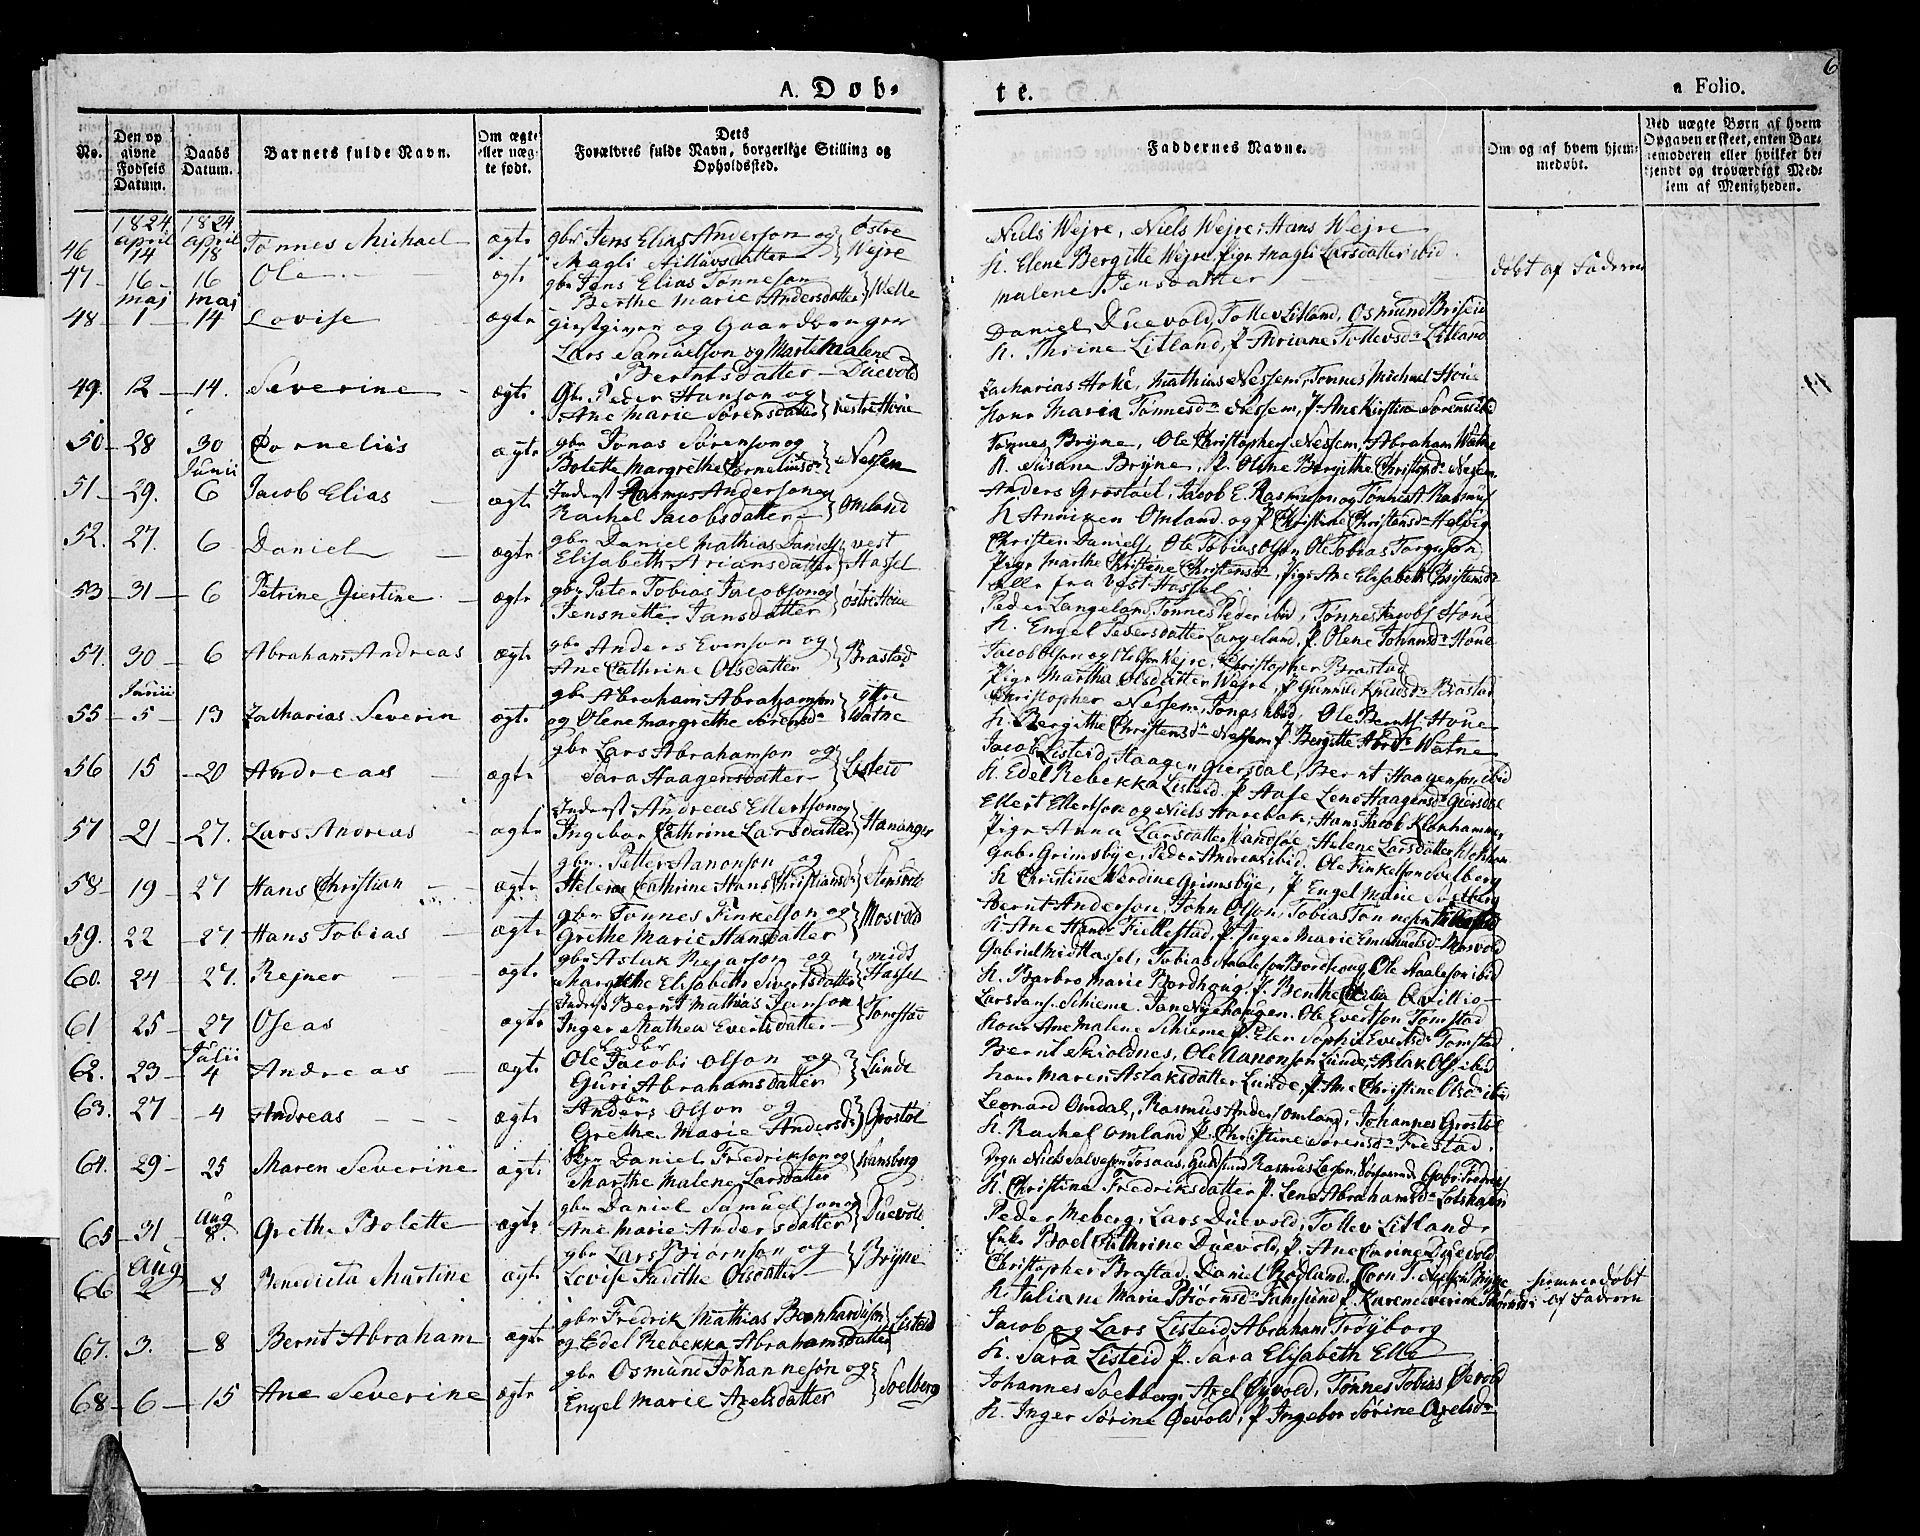 A. Døb-
te.
a Folio.
6
No.
Den op
givne
Fødsels
Datum.
Daabs
Datum.
Barnets fulde Navn.
Om ægte
eller uæg-
te født.
Dets
Forældres fulde Navn, borgerlige Stilling og
Opholdssted.
Faddernes Navne.
Om og af hvem hjem-
medøbt.
Ved uægte Børn af hvem
Opgaven er skeet, enten Bar-
nemoderen eller hvilket be-
kjendt og troværdigt Med-
lem af Menigheden.
1824 1824
46 april 14 april 18 Tønnes Michael ægte gbr Jens Elias Anderson og Østre
Magli Nillavsdatter Wejre
Niels Wejre, Niels Wejre, Hans Wejre
K. Elene Bergitte Wejre, pige Magli Larsdatter ibid.
47 16 16 Ole ægte gbr Jens Elias Tønneson
Berthe Marie Andersdatter Welle
Malene Jensdatter
døbt af Faderen
maj maj
48 1 14 Lovise ægte giestgiver og Gaardbruger
Lars Samuelson og Marte Malene
Berntsdatter Duevold
Daniel Duevold, Tollev Litland, Osmund Briseid
K. Thrine Litland, P. Thriane Tollevsd. Litland
49. 12 14. Severine ægte Gbr. Peder Hanson og
Ane Marie Sørensdatter Vestre Houe
Zacharias Houe, Mathias Nessem, Tønnes Michael Houe
Kone Maria Tønnesd. Nessem, P. Ane Kirstine Sørensd ibid
50 28 30 Cornelius ægte gbr Jonas Sørenson og
Bolette Margrethe Corneliusd. Nessem
Tønnes Bryne, Ole Christophers Nessem, Abraham Watne
K. Susane Bryne, P. Olene Bergithe Christophd. Nessem
Junii
51 29. 6 Jacob Elias ægte Inderst Rasmus Anderson og
Rachel Jacobsdatter Omland
Anders Grostøel, Jacob E. Rasmuson og Tønnes A. Rasmus
K Anniken Omland og P Christine Christensd. Helvig
52. 27. 6 Daniel ægte gbr Daniel Mathias Daniels vest
Elisabeth Ariansdatter Hassel
Christen Daniels, Ole Tobias Olson, Ole Tobias Torguson
Pige Marthe Christine Christensd., Pige Ane Elisabeth Christensd.
alle fra Vest Hassel
53 31 6 Petrine Giertine ægte gbr Peter Tobias Jacobson og
Jensnette Jansdatter østre Houe
Peder Langeland, Tønnes Peder ibid, Tønnes Jacobs Houe
K. Engel Pedersdatter Langeland, P. Olene Johansd. Houe
54. 30 6 Abraham Andreas ægte gbr Anders Evenson og
Ane Cathrine Olsdatter Brastad
Jacob Olson og Ole Olson Wejre, Christopher Brastad
Pige Martha Olsdatter Wejre, P. Gunnild Knudsd. Brastad
Junii
55 5 13 Zacharias Severin ægte gbr Abraham Abrahamson yttre
og Olene Margrethe Sørensd. Watne
Christopher Nessem, Jonas ibid, Ole Bernts Houe
K. Bergithe Christensd. Nessem P. Bergitte Abrd. Watne
56 15 20 Andreas ægte gbr Lars Abrahamson og
Sara Haagensdatter Listeid
Jacob Listeid, Haagen Giersdal, Bernt Haagenson ibid
K. Edel Rebekka Listeid. P. Aase Lene Haagensd. Giersdal
57 21 27. Lars Andreas ægte Inderst Andreas Ellertson og
Ingebor Cathrine Larsdatter Hananger
Ellert Ellertson og Niels Aarebak, Hans Jacob Klonhammer
Pige Anna Larsdatter Vandsøe, Helene Larsdatter Klokham
58 19 27 Hans Christian ægte gbr. Petter Aanonson og
Helene Cathrine Hans Christiansd.
Gabr. Grimsbye, Peder Andreas ibid, Ole Finkelson Soelberg
K Christine Werdine Grimsbye, P. Engel Marie Soelberg
59. 22 27. Hans Tobias ægte gbr Tønnes Finkelson og
Grethe Marie Hansdatter Mosvold
Bernt Anderson, John Olson, Tobias Tønneson
K. Ane Hansd. Fiellestad, P. Inger Marie Emanuelsd. Mosvold
60. 24 27. Rejner ægte gbr Aslak Rejarson og midt
Margrethe Elisabeth Sivertsdatter Hassel
Gabriel Midt Hassel, Tobias Staaleson Bordhoug, Ole Staaleson ibid
K. Barbro Marie Bordhoug, P. Benthe Cecilia Qvillio
61 25 27 Oseas ægte Inderst Bernt Mathias Janson
Inger Mathea Evertsdatter Tomstad
Lars Jans. Schieme, Jane Nyehaugen, Ole Evertson Tomstad
Kone Ane Malene Schieme P. Elen Sophie Evertsd. Tomstad
Julii
62. 23 4 Andreas ægte Ole Jacobi Olson og
Guri Abrahamsdatter Lunde
Bernt Skioldnes, Ole Aanonson Lunde, Aslak Ols ibid
Kone Maren Aslaksdatter Lunde, P. Ane Christine Olsd. ibid
63. 27 4 Andreas ægte gbr
Anders Olson og
Grethe Marie Andersd. Grostøl
Leonard Omdal, Rasmus Anders Omland, Johannes Grostøl
K. Rachel Omland P. Christine Sørensd. Frestad.
64. 29 25 Maren Severine ægte Daniel Fredrikson og
Marthe Malene Larsdatter Wansberg
K. Christine Fredriksdatter P. Lene Abrahamsd. Lotshavn
Aug
65 31 8. Grethe Bolette ægte gbr Daniel Samuelson og
Ane Marie Andersdatter Duevold
Peder Meberg, Lars Duevold, Tollev Litland.
Enke Boel Cathrine Duevold, P. Ane Carine Duevold
Aug
66 2 8 Benedicta Martine ægte gbr Lars Biørnson og
Lovise Judithe Olsdatter Bryne
Christopher Brastad, Daniel Rødlund, Corn T. Nielson Bryne
K. Juliane Marie Biørnsd. Farsund P. Karen Severine Biørnsd.
hjemmedøbt
af Faderen
67. 3. 8 Bernt Abraham ægte gbr Fredrik Mathias Bernhardsson Listeid
og Edel Rebekka Abrahamsdatter
Jacob og Lars Listeid, Abraham Trøyborg
K. Sara Listeid P. Sara Elisabeth Elle
68 6 15 Ane Severine ægte gbr Osmund Johanneson og
Engel Marie Axelsdatter Soelberg
Johannes Soelberg, Axel Øyvold, Tønnes Tobias Øevold
K. Inger Sørine Øevold, P Ingebor Sørine Axelsd.